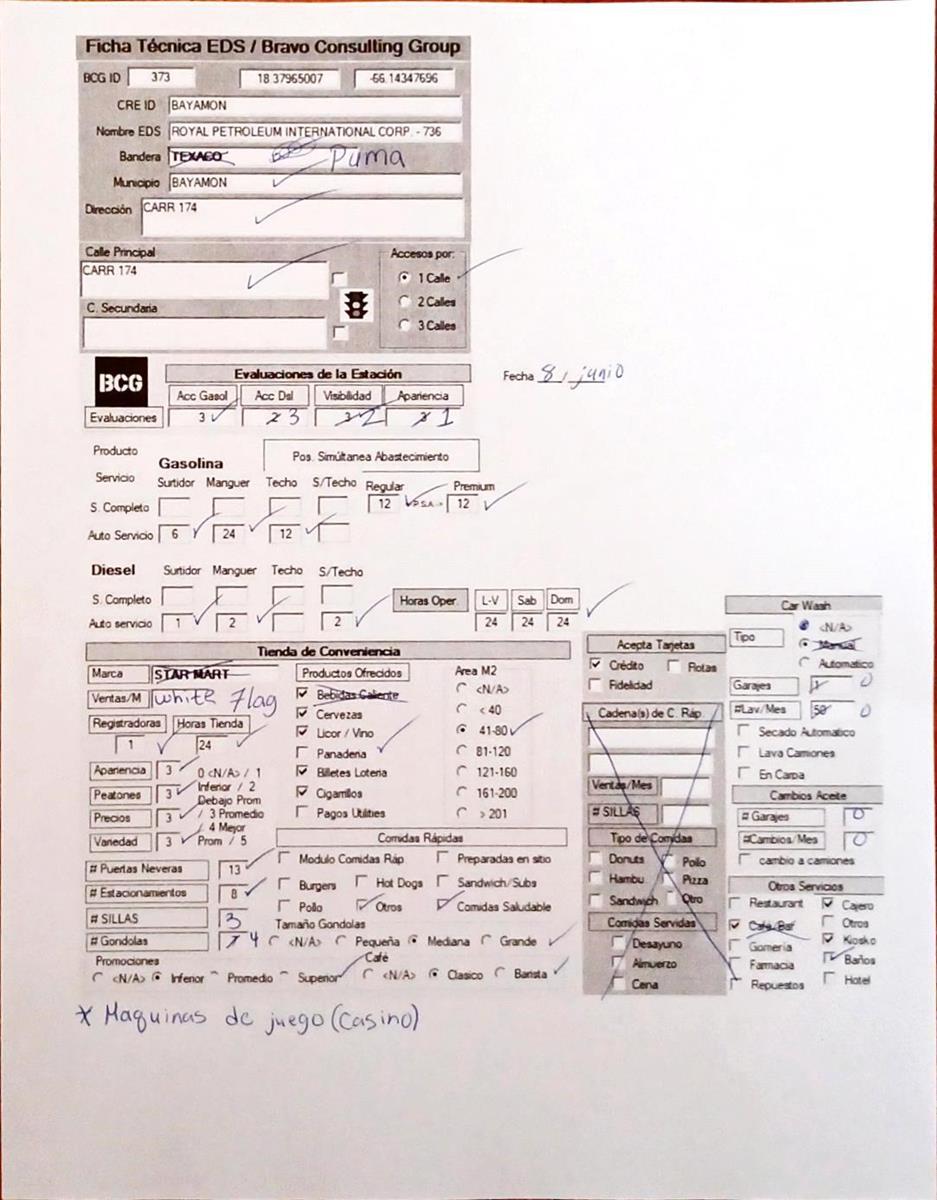 Ficha Técnica EDS / Bravo Consulting Group
BCG ID 373 18 37965007 -66.14347696
CRE ID BAYAMON
Nombre EDS ROYAL PETROLEUM INTERNATIONAL CORP. - 736
Bandera TEXACO Puma
Municipio BAYAMON
Dirección CARR 174
Calle Principal Accesos por:
CARR 174 1 Calle
C. Secundaria 2 Calles
3 Calles
BCG Evaluaciones de la Estación Fecha 8 / junio
Acc Gasol Acc Dsl Visibilidad Apariencia
Evaluaciones 3 2 3 3 2 3 1
Producto Gasolina Pos. Simúltanea Abastecimiento
Servicio Surtidor Manguer Techo S/Techo Regular Premium
S. Completo 12 P.S.A. -> 12
Auto Servicio 6 24 12
Diesel Surtidor Manguer Techo S/Techo
S. Completo Horas Oper. L-V Sab Dom
Auto servicio 1 2 2 24 24 24
Tienda de Conveniencia
Marca STAR MART
Ventas/M white Flag
Registradoras Horas Tienda
1 24
Apariencia 3 0 <N/A> / 1
Peatones 3 Inferior / 2
Debajo Prom
Precios 3 / 3 Promedio
/ 4 Mejor
Variedad 3 Prom / 5
# Puertas Neveras 13
# Estacionamientos 8
# SILLAS 3
# Gondolas 4
Promociones
<N/A> Inferior Promedio Superior
Productos Ofrecidos
Bebidas Caliente
Cervezas
Licor / Vino
Panaderia
Billetes Loteria
Cigarrillos
Pagos Utilities
Area M2
<N/A>
< 40
41-80
81-120
121-160
161-200
> 201
Comidas Rápidas
Modulo Comidas Ráp Preparadas en sitio
Burgers Hot Dogs Sandwich/Subs
Pollo Otros Comidas Saludable
Tamaño Gondolas
<N/A> Pequeña Mediana Grande
Café
<N/A> Clasico Barista
Acepta Tarjetas
Crédito Flotas
Fidelidad
Cadena(s) de C. Ráp
Ventas/Mes
# SILLAS
Tipo de Comidas
Donuts Pollo
Hambu Pizza
Sandwich Otro
Comidas Servidas
Desayuno
Almuerzo
Cena
Car Wash
Tipo <N/A>
Manual
Automatico
Garajes 1 0
#Lav/Mes 50 0
Secado Automatico
Lava Camiones
En Carpa
Cambios Aceite
# Garajes 0
#Cambios/Mes 0
cambio a camiones
Otros Servicios
Restaurant Cajero
Café Bar Otros
Gomería Kiosko
Farmacia Baños
Repuestos Hotel
* Maquinas de juego (Casino)